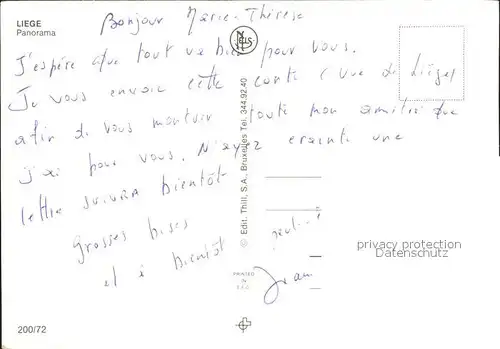 LIEGE
Panorama
Bonjour Marie-Thérèse
J'espère que tout va bien pour vous.
Je vous envoie cette carte (vue de Liège)
afin de vous montrer toute mon amitié que
j'ai pour vous. N'ayez crainte une
lettre suivra bientôt
Grosses bises
et à bientôt peut-
Jean
© Edit. Thill, S.A., Bruxelles Tel. 344.92.40
PRINTED
IN
E.E.C.
privacy protection
Datenschutz
200/72